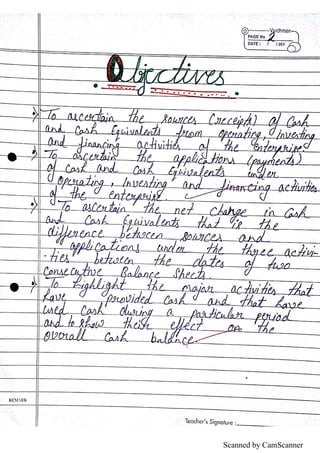 Vardhman
PAGE No. 2
DATE : / /201
Objectives
To ascertain the sources (receipts) of Cash
and Cash Equivalents from operating, Investing
and financing activities of the enterprise.
To ascertain the applications (payments)
of Cash and Cash Equivalents under
Operating, Investing and financing activities
of the enterprise.
To ascertain the net change in Cash
and Cash Equivalents that is the
difference between sources and
applications under the three activi-
-ties between the dates of two
Consecutive Balance Sheets.
To Highlight the major activities that
have provided cash and that have
used Cash during a particular period
and to show their effect on the
overall Cash balance.
Teacher's Signature :
Scanned by CamScanner